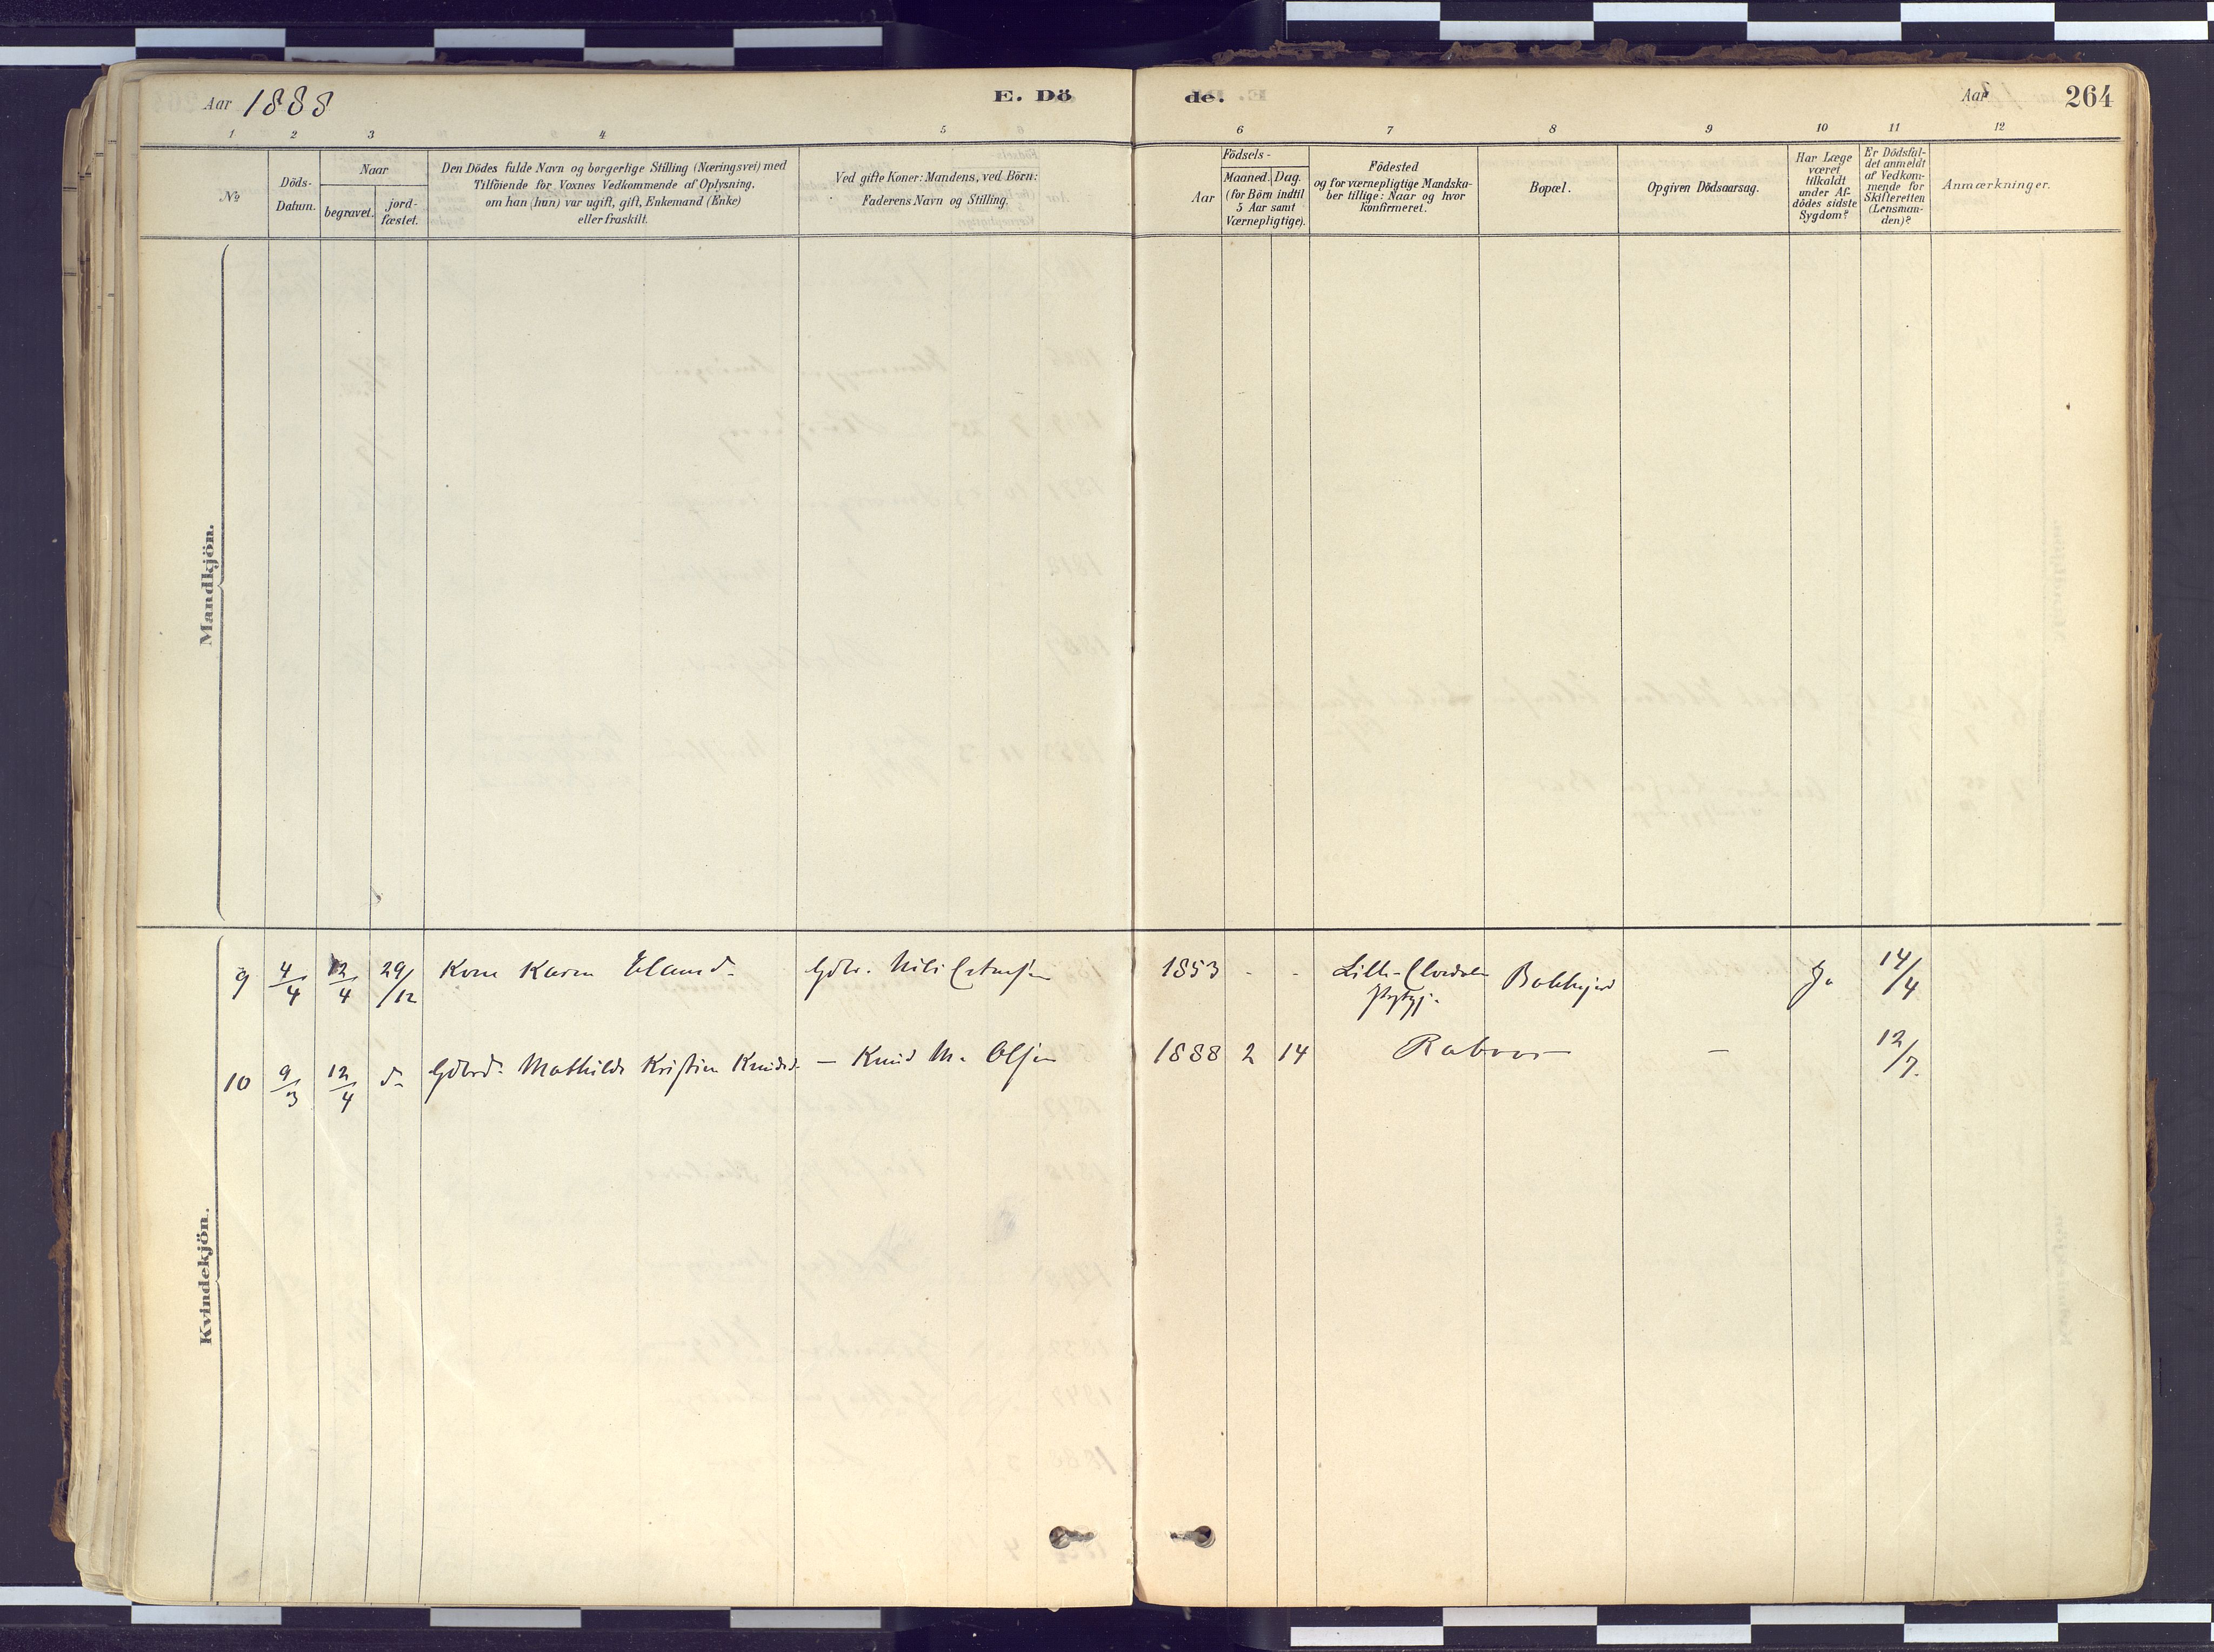 Aar 1888
E. Dö
de.
Aar
264
1 2 3 4 5 6 7 8 9 10 11 12
No
Döds-
Datum.
Naar
begravet.
jord-
fæstet.
Den Dödes fulde Navn og borgerlige Stilling (Næringsvei) med
Tilföiende for Voxnes Vedkommende af Oplysning,
om han (hun) var ugift, gift, Enkemand (Enke)
eller fraskilt.
Ved gifte Koner: Mandens, ved Börn:
Faderens Navn og Stilling.
Födsels-
Aar
Maaned. Dag.
(for Börn indtil
5 Aar samt
Værnepligtige).
Födested
og for værnepligtige Mandska-
ber tillige: Naar og hvor
konfirmeret.
Bopæl.
Opgiven Dödsaarsag.
Har Læge
været
tilkaldt
under Af-
dödes sidste
Sygdom?
Er Dödsfal-
det anmeldt
af Vedkom-
mende for
Skifteretten
(Lensman-
den)?
Anmærkninger.
Mandkjön.
Kvindekjön.
9 4/4 12/4 29/12 Kone Karen Gbr. Nils 1853 - - Lille- Ja 14/4
10 9/3 12/4 do Mathilde Kristine Knudsd. — Knud M. Olsen 1888 2 14 — 12/7